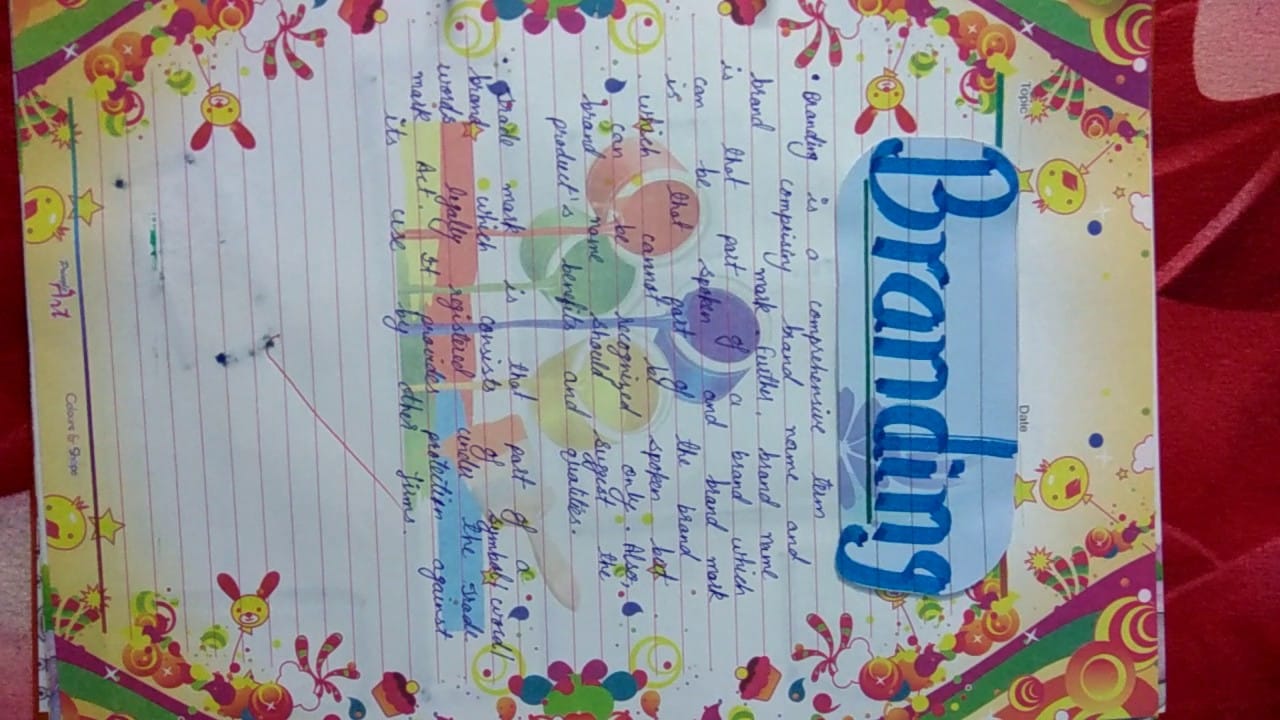 Topic
Date
Branding
• Branding is a comprehensive term
comprising brand name and
brand mark. further, brand name
is that part of a brand which
can be spoken and brand mark
is that part of the brand
which cannot be spoken but
can be recognized only. Also,
brand name should suggest the
product's benefits and qualities.
• Trade mark is that part of a
brand which consists of symbol/word/
words legally registered under the Trade
mark Act. It provides protection against
its use by other firms.
Art
Colours & Shape